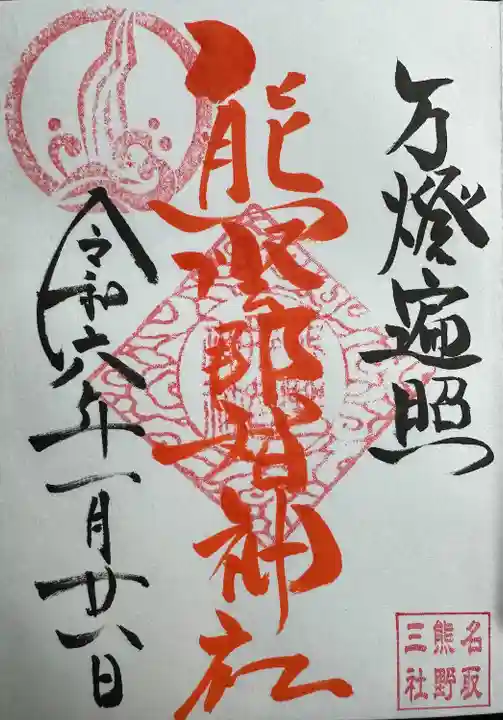 万燈遍照
熊野那智神社
令和六年一月廿八日
名取
熊野
三社